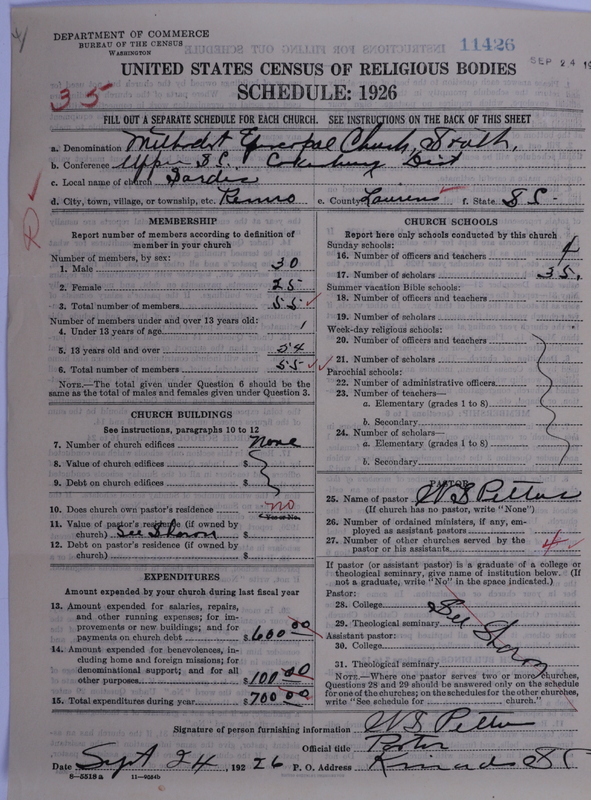 DEPARTMENT OF COMMERCE
BUREAU OF THE CENSUS
WASHINGTON
11426
SEP 24 19
UNITED STATES CENSUS OF RELIGIOUS BODIES
35
SCHEDULE: 1926
FILL OUT A SEPARATE SCHEDULE FOR EACH CHURCH. SEE INSTRUCTIONS ON THE BACK OF THIS SHEET
a. Denomination Methodist Episcopal Church, South,
b. Conference Upper S.C. Cokesbury Dist
c. Local name of church Sardis
d. City, town, village, or township, etc. Renno e. County Laurens f. State S C -
MEMBERSHIP
Report number of members according to definition of member in your church
Number of members, by sex:
1. Male 30
2. Female 25
3. Total number of members 55
Number of members under and over 13 years old:
4. Under 13 years of age 1
5. 13 years old and over 54
6. Total number of members 55
NOTE.—The total given under Question 6 should be the same as the total of males and females given under Question 3.
CHURCH BUILDINGS
See instructions, paragraphs 10 to 12
7. Number of church edifices None
8. Value of church edifices $
9. Debt on church edifices $
10. Does church own pastor's residence no
Yes or No.
11. Value of pastor's residence (if owned by church) See Sharon $
12. Debt on pastor's residence (if owned by church) $
EXPENDITURES
Amount expended by your church during last fiscal year
13. Amount expended for salaries, repairs, and other running expenses; for improvements or new buildings; and for payments on church debt $ 600 00
14. Amount expended for benevolences, including home and foreign missions; for denominational support; and for all other purposes $ 100 00
15. Total expenditures during year $ 700 00
CHURCH SCHOOLS
Report here only schools conducted by this church
Sunday schools:
16. Number of officers and teachers 4
17. Number of scholars 35.
Summer vacation Bible schools:
18. Number of officers and teachers
19. Number of scholars
Week-day religious schools:
20. Number of officers and teachers
21. Number of scholars
Parochial schools:
22. Number of administrative officers
23. Number of teachers—
a. Elementary (grades 1 to 8)
b. Secondary
24. Number of scholars—
a. Elementary (grades 1 to 8)
b. Secondary
PASTOR
25. Name of pastor W S Pettus
(If church has no pastor, write "None")
26. Number of ordained ministers, if any, employed as assistant pastors
27. Number of other churches served by the pastor or his assistants 4
If pastor (or assistant pastor) is a graduate of a college or theological seminary, give name of institution below. (If not a graduate, write "No" in the space indicated.)
Pastor:
28. College
29. Theological seminary See Sharon
Assistant pastor:
30. College
31. Theological seminary
NOTE.—Where one pastor serves two or more churches, Questions 28 and 29 should be answered only on the schedule for one of the churches; on the schedules for the other churches, write "See schedule for church."
Signature of person furnishing information W S Pettus
Official title Pastor
Date Sept 24, 1926 P. O. Address Kinards S C
8—5518a 11—9054b